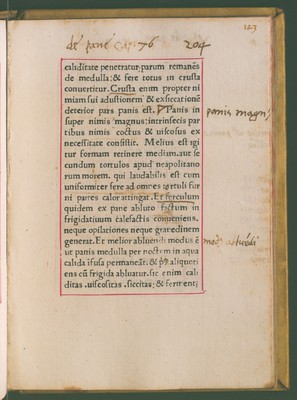 123
de pane cap 76 204
caliditate penetratur, parum remanẽs
de medulla: & fere totus in crusta
conuertitur. Crusta enim propter ni
miam sui adustionem & exsiccationẽ
deterior pars panis est. Panis in
super nimis magnus: intrinsecis par
tibus nimis coctus & uiscosus ex
necessitate consistit. Melius est igi
tur formam retinere medium, aut se
cundum tortulos apud neapolitano
rum morem, qui laudabilis est cum
uniformiter fere ad omnes tortuli fur
ni partes calor attingat. Et ferculum
quidem ex pane abluto factum in
frigidatiuum calefactis conueniens,
neque opilationes neque grauedinem
generat. Et melior abluendi modus ẽ
ut panis medulla per noctem in aqua
calida ĩfusa permaneãt. & pꝰ aliquoti
ens cũ frigida abluatur. sic enim cali
ditas, uiscositas, siccitas: & fermenti
panis magnꝰ